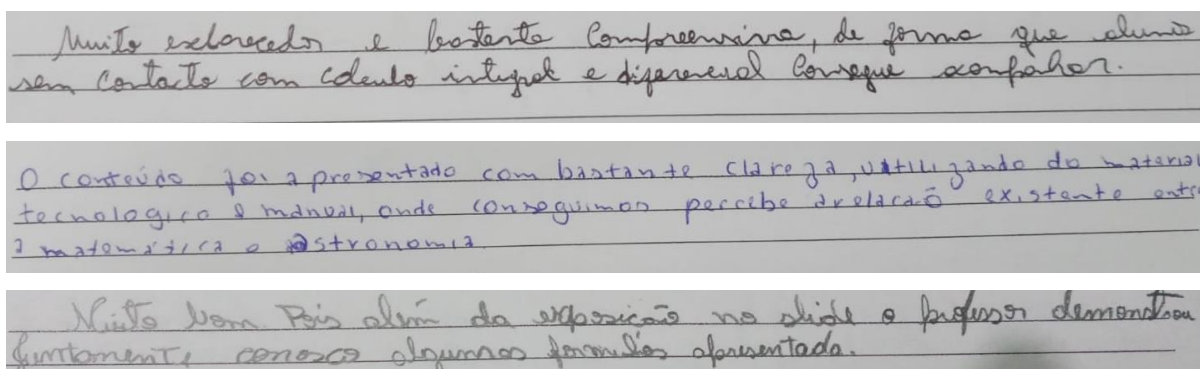 Muito esclarecedor e bastante Compreensiva, de forma que aluno
sem contacto com calculo integral e diferencial Consegue acompanhar.
O conteúdo foi apresentado com bastante clareza, utilizando do material
tecnologico e manual, onde conseguimos percebe a relação existente entre
a matemática e astronomia
Muito bom Pois além da exposição no slide o professor demonstrou
juntamente conosco algumas formulas apresentada.